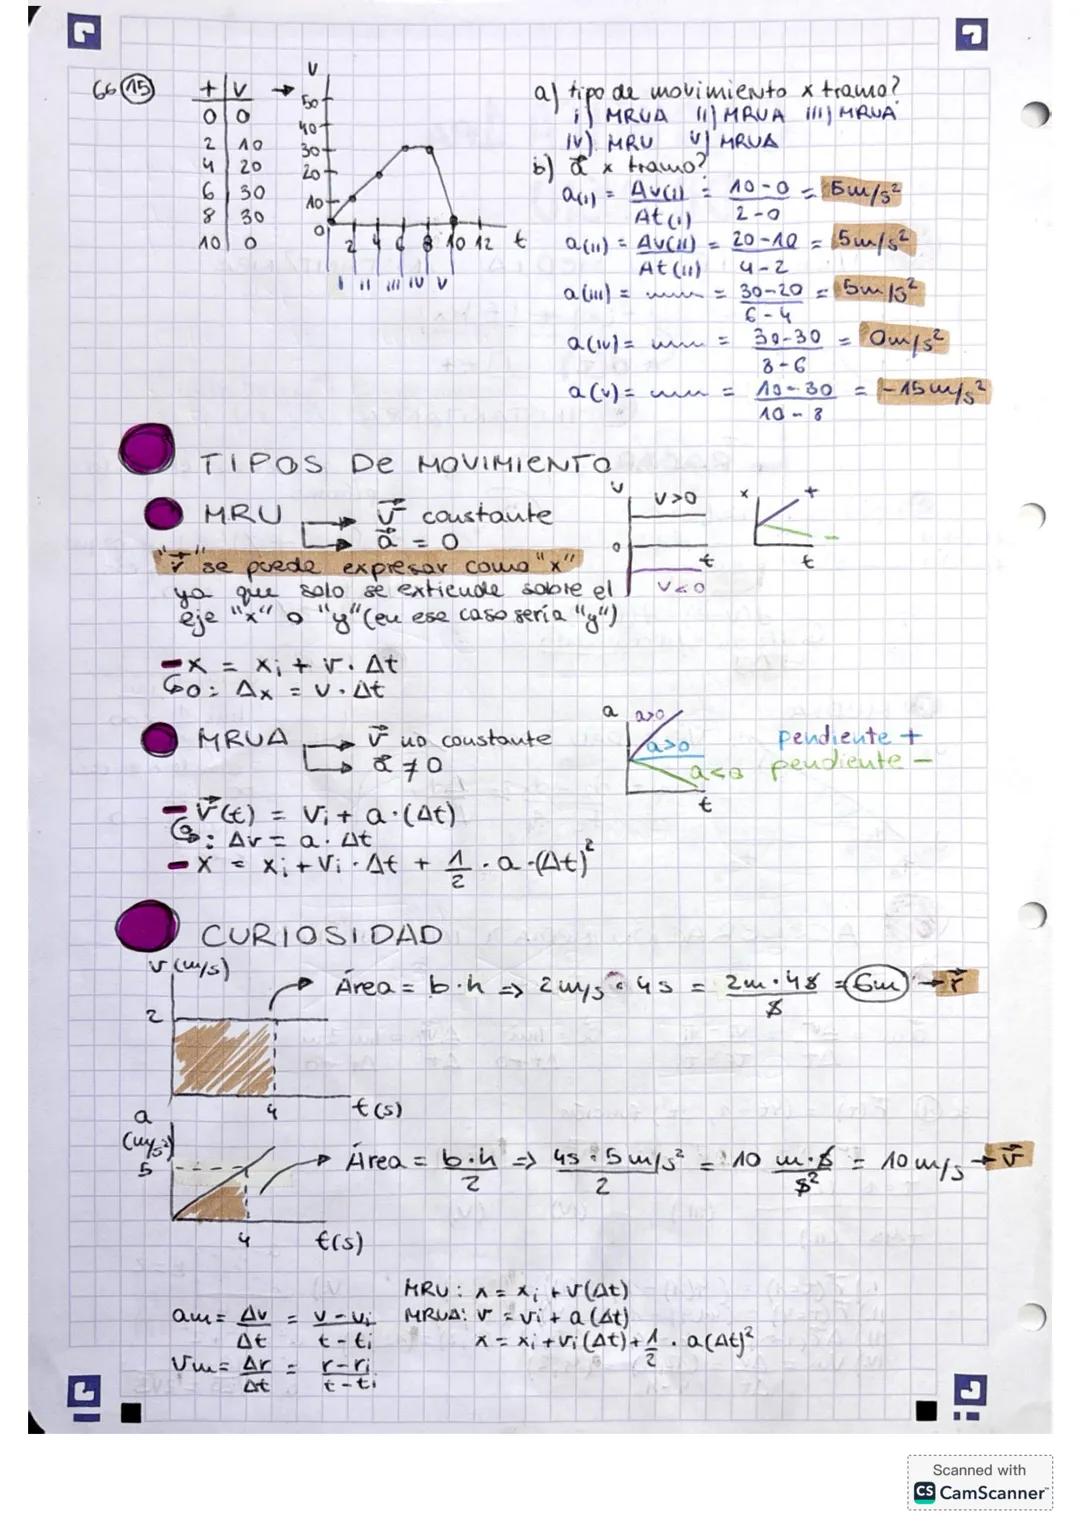 66 15
t | v →
0 | 0
2 | 10
4 | 20
6 | 30
8 | 30
10 | 0
v
50
40
30
20
10
0
2 4 6 8 10 12 t
I II III IV V
a) tipo de movimiento x tramo?
I) MRUA II) MRUA III) MRUA
IV) MRU V) MRUA
b) a⃗ x tramo?
a(I) = Δv(I) / Δt(I) = 10-0 / 2-0 = 5m/s²
a(II) = Δv(II) / Δt(II) = 20-10 / 4-2 = 5m/s²
a(III) = = 30-20 / 6-4 = 5m/s²
a(IV) = = 30-30 / 8-6 = 0m/s²
a(V) = = 10-30 / 10-8 = -15m/s²
TIPOS De MOVIMIENTO
MRU → v⃗ constante
→ a⃗ = 0
v
v>0
0
t
v<0
x
+
-
t
"r⃗" se puede expresar como "x"
ya que solo se extiende sobre el
eje "x" o "y" (en ese caso sería "y")
- x = xi + v · Δt
↳ o: Δx = v · Δt
MRUA → v⃗ no constante
→ a⃗ ≠ 0
a
a>0
a>0
a<0
t
pendiente +
pendiente -
- v⃗(t) = vi + a · (Δt)
↳ : Δv = a · Δt
- x = xi + vi · Δt + 1/2 · a · (Δt)²
CURIOSIDAD
v (m/s)
2
4
t(s)
Área = b·h => 2m/s · 4s = 2m·4s / s = 6m → r⃗
a
(m/s²)
5
4
t(s)
Área = b·h / 2 => 4s · 5m/s² / 2 = 10 m·s / s² = 10m/s → v⃗
MRU: x = xi + v(Δt)
am = Δv / Δt = v - vi / t - ti
MRUA: v = vi + a(Δt)
x = xi + vi(Δt) + 1/2 · a(Δt)²
vm = Δr / Δt = r - ri / t - ti
Scanned with
CS CamScanner